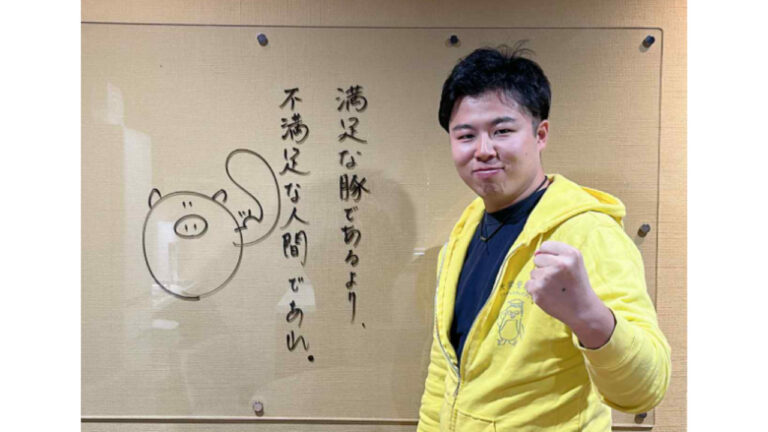 満足な豚であるより、
不満足な人間であれ。